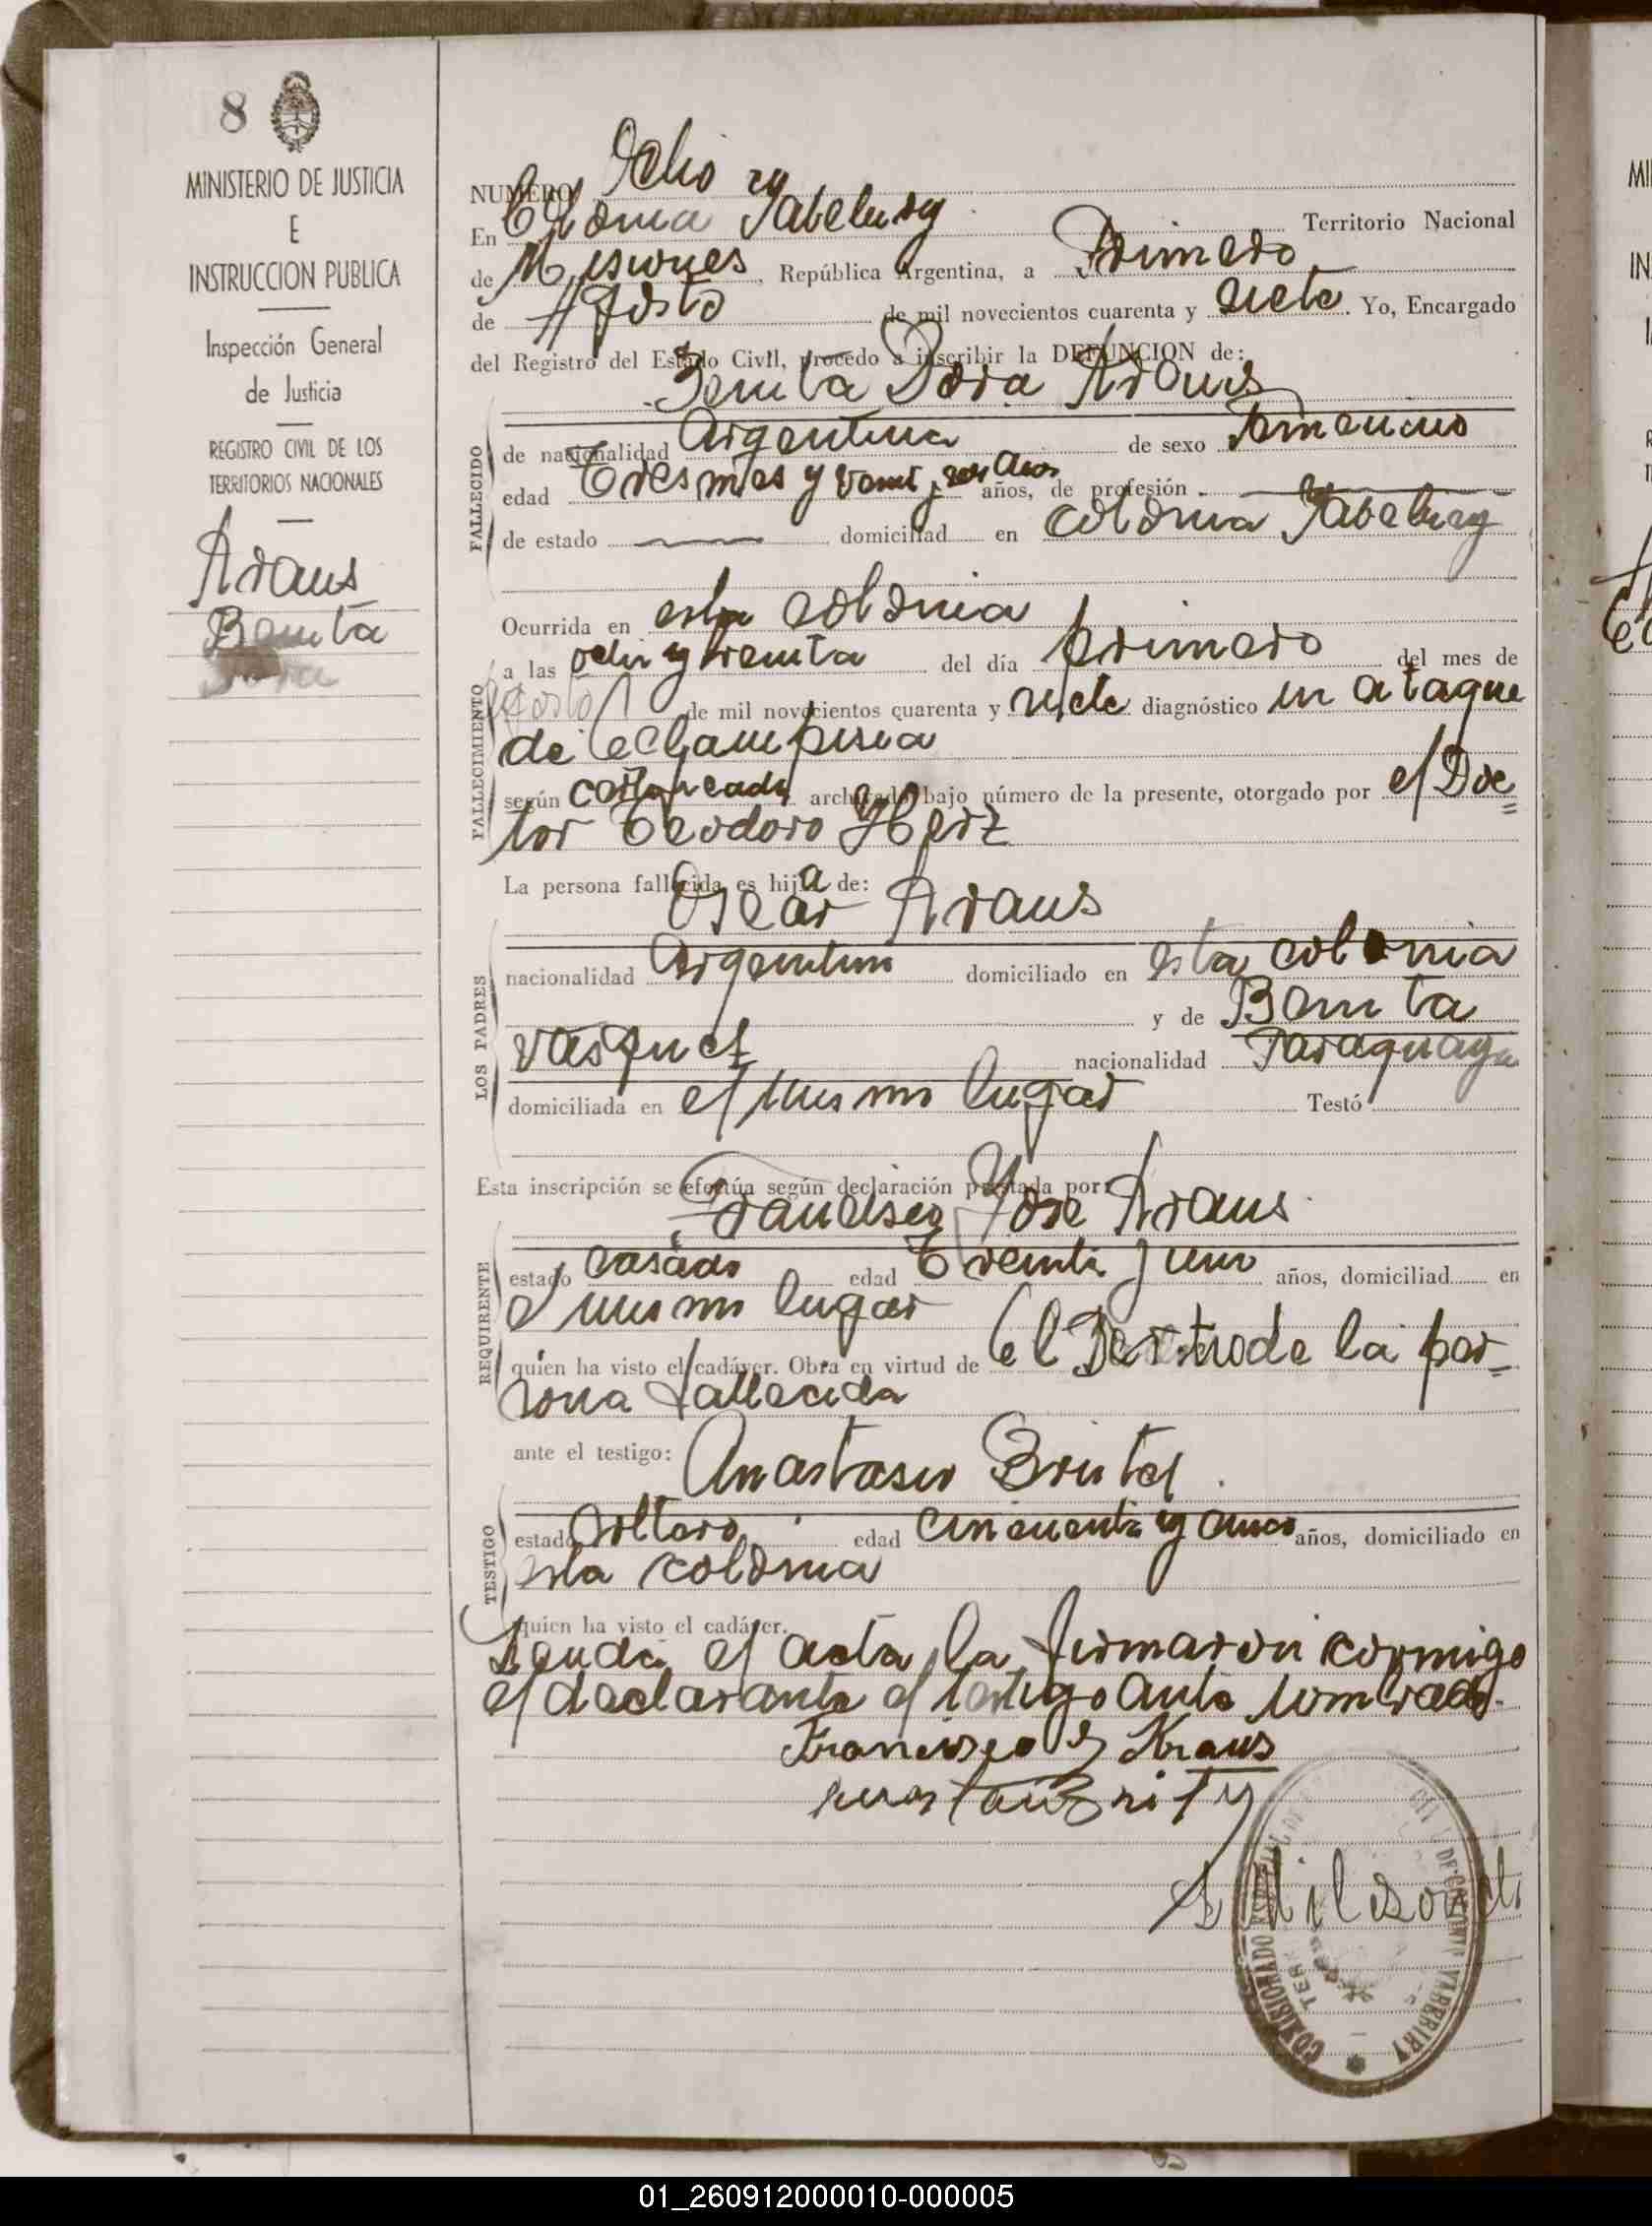 8
MINISTERIO DE JUSTICIA
E
INSTRUCCION PUBLICA
Inspección General
de Justicia
REGISTRO CIVIL DE LOS
TERRITORIOS NACIONALES
Kraus
Benita
Dora
NUMERO Ocho
En Colonia Yabebiry Territorio Nacional
de Misiones, República Argentina, a Primero
de Agosto de mil novecientos cuarenta y siete. Yo, Encargado
del Registro del Estado Civil, procedo a inscribir la DEFUNCION de:
Benita Dora Kraus
FALLECIDO
de nacionalidad Argentina de sexo femenino
edad Tres meses y años, de profesión
de estado domiciliad en colonia Yabebiry
Ocurrida en esta colonia
FALLECIMIENTO
a las ocho y treinta del día primero del mes de
Agosto de mil novecientos cuarenta y siete diagnóstico un ataque
de eclampsia
según archivado bajo número de la presente, otorgado por el Doc=
tor Teodoro Herz
La persona fallecida es hija de:
Oscar Kraus
LOS PADRES
nacionalidad Argentino domiciliado en esta colonia
y de Benita
Vasquez nacionalidad Paraguaya
domiciliada en el mismo lugar Testó
Esta inscripción se efectúa según declaración prestada por:
Francisco Jose Kraus
REQUIRENTE
estado casado edad Treinta y uno años, domiciliad en
el mismo lugar
quien ha visto el cadáver. Obra en virtud de el de la per=
sona fallecida
ante el testigo: Anastasio Britez
TESTIGO
estado soltero edad cincuenta y cinco años, domiciliado en
esta colonia
quien ha visto el cadáver.
Leuda el acta la firmaron conmigo
el declarante el testigo ante nombrado.
Francisco J Kraus
COMISIONADO
YABEBIRY
01_260912000010-000005